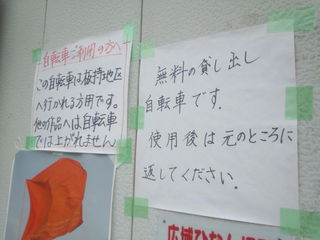 自転車ご利用の方へ
この自転車は板持地区
へ行かれる方用です。
他の作品へは自転車
では上がれません
無料の貸し出し
自転車です.
使用後は元のところに
返してください.
広域